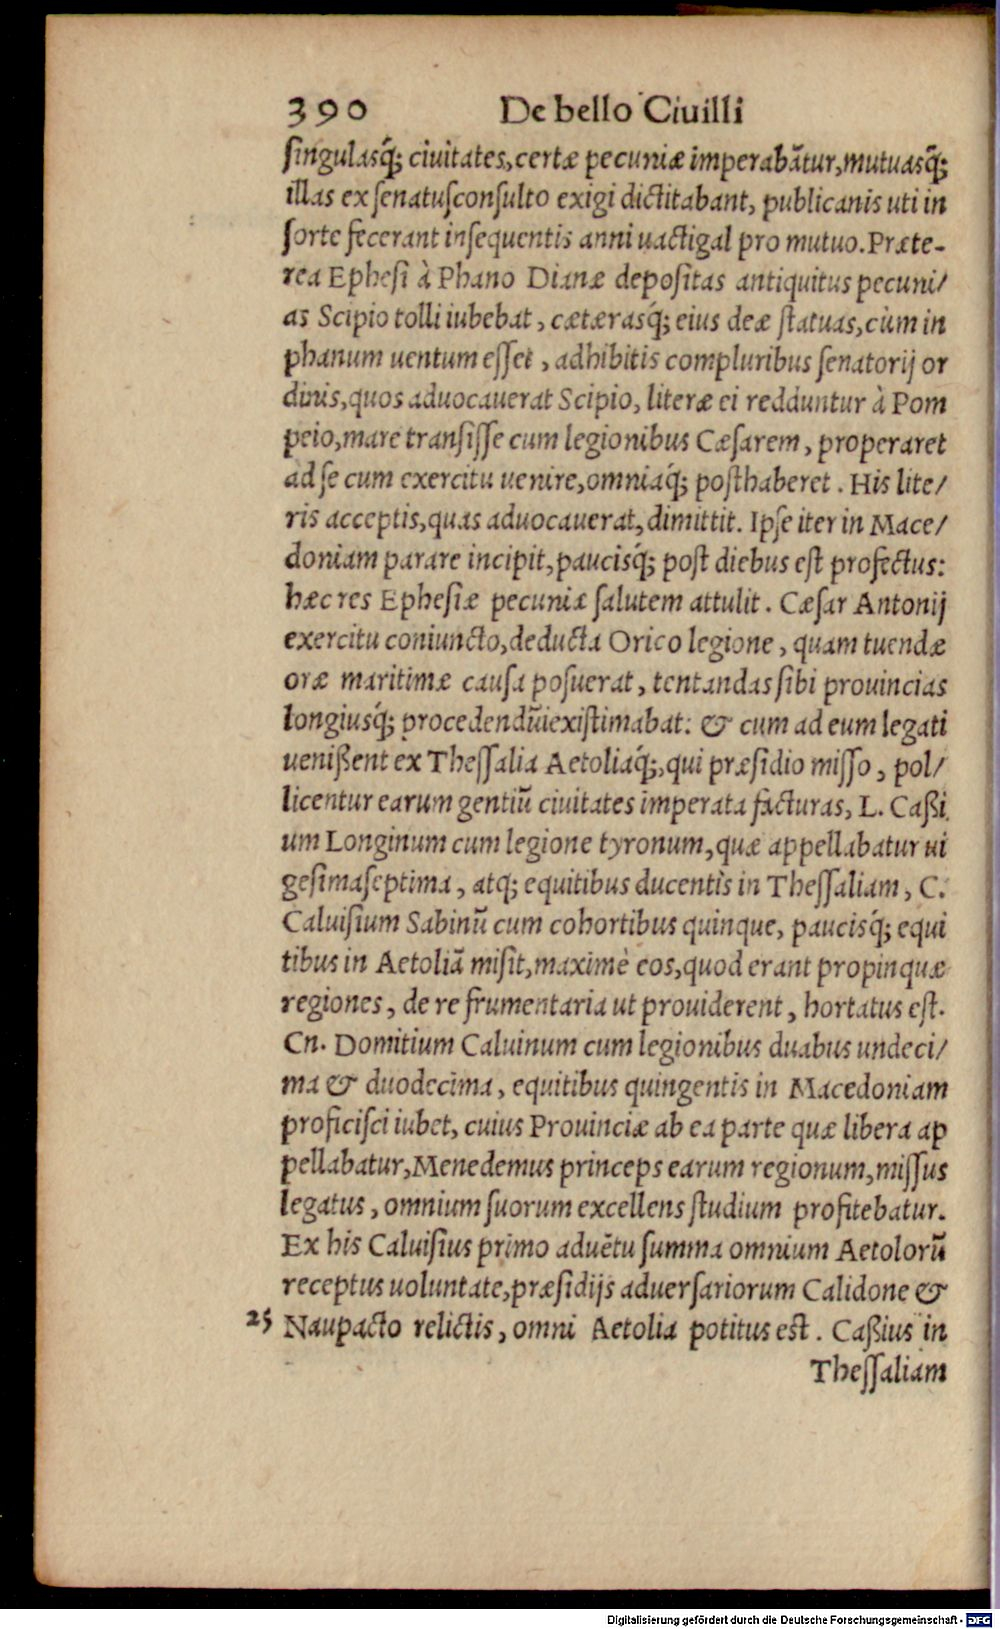 390 De bello Ciuilli
singulasq́; ciuitates, certæ pecuniæ imperabātur, mutuasq́;
illas ex senatusconsulto exigi dictitabant, publicanis uti in
sorte fecerant insequentis anni uactigal pro mutuo. Præte-
rea Ephesi à Phano Dianæ depositas antiquitus pecuni/
as Scipio tolli iubebat, cætærasq́; eius deæ statuas, cùm in
phanum uentum esset, adhibitis compluribus senatorij or
dinis, quos aduocauerat Scipio, literæ ei redduntur à Pom
peio, mare transisse cum legionibus Cæsarem, properaret
ad se cum exercitu uenire, omniaq́; posthaberet. His lite/
ris acceptis, quas aduocauerat, dimittit. Ipse iter in Mace/
doniam parare incipit, paucisq́; post diebus est profectus:
hæc res Ephesiæ pecuniæ salutem attulit. Cæsar Antonij
exercitu coniuncto, deducta Orico legione, quam tuendæ
oræ maritimæ causa posuerat, tentandas sibi prouincias
longiusq́; procedendūiexistimabat: & cum ad eum legati
uenißent ex Thessalia Aetoliaq́;, qui præsidio misso, pol/
licentur earum gentiū ciuitates imperata facturas, L. Caßi
um Longinum cum legione tyronum, quæ appellabatur ui
gesimaseptima, atq; equitibus ducentìs in Thessaliam, C.
Caluisium Sabinū cum cohortibus quinque, paucisq́; equi
tibus in Aetoliā misit, maximè eos, quod erant propinquæ
regiones, de re frumentaria ut prouiderent, hortatus est.
Cn. Domitium Caluinum cum legionibus duabus undeci/
ma & duodecima, equitibus quingentis in Macedoniam
proficisci iubet, cuius Prouinciæ ab ea parte quæ libera ap
pellabatur, Menedemus princeps earum regionum, missus
legatus, omnium suorum excellens studium profitebatur.
Ex his Caluisius primo aduētu summa omnium Aetolorū
receptus uoluntate, præsidijs aduersariorum Calidone &
25 Naupacto relictis, omni Aetolia potitus est. Caßius in
Thessaliam
Digitalisierung gefördert durch die Deutsche Forschungsgemeinschaft - DFG